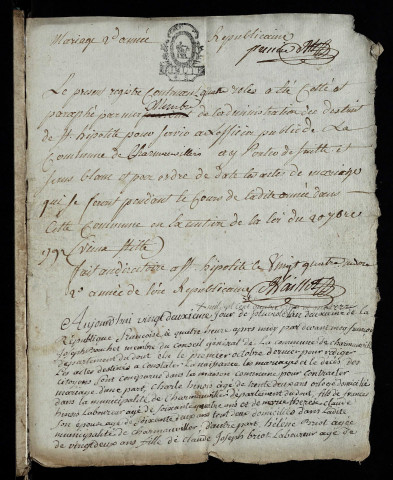 Mariage 2e année Republicaine
premier
Le present registre Contenant quatre roles a été Cotté et
paraphé par membre de l'administration du district
de st hipolite pour servir a L'officier public de La
Commune de Charmauvillers a y Porter de suitte et
sans blanc et par ordre de Date Les actes de mariage
qui se feront pendant le Cours de Ladite année dans
Cette Commune en La de la loi du 20 7bre
1792 Vieux Stile
fait au directoire a st hipolite le Vingt quatre
2e année de l'ère Republicaine
Aujourd'hui vingt deuxieme jour de L'an deuxieme de la
Republique francoise a quatre heure apres midy par devant moy
Joseph membre du Conseil general de la commune de charmauvillers
departement du doubs elû le premier octobre dernier pour rediger
Les actes destinés a constater Les naissances Les mariages et le décès des
citoyens sont comparus dans la maison commune pour contracter
mariage d'une part, charle agé de trente deux ans domicilié
dans la municipalité de charmauvillers departement du doubs, fils de francois
Laboureur agé de soixante ans et de marie therese
son épouse agé de soixante deux ans tout deux domiciliés dans Ladite
municipalité de charmauvillers, d'autre part, helene Briot agée
de vingt deux ans fille de claude Joseph briot Laboureur agé de